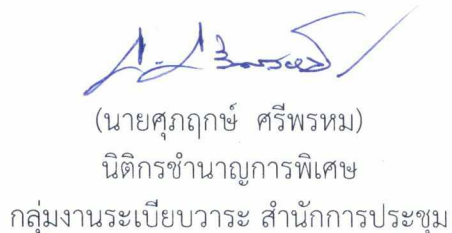 (นายศุภฤกษ์ ศรีพรหม)
นิติกรชำนาญการพิเศษ
กลุ่มงานระเบียบวาระ สำนักการประชุม